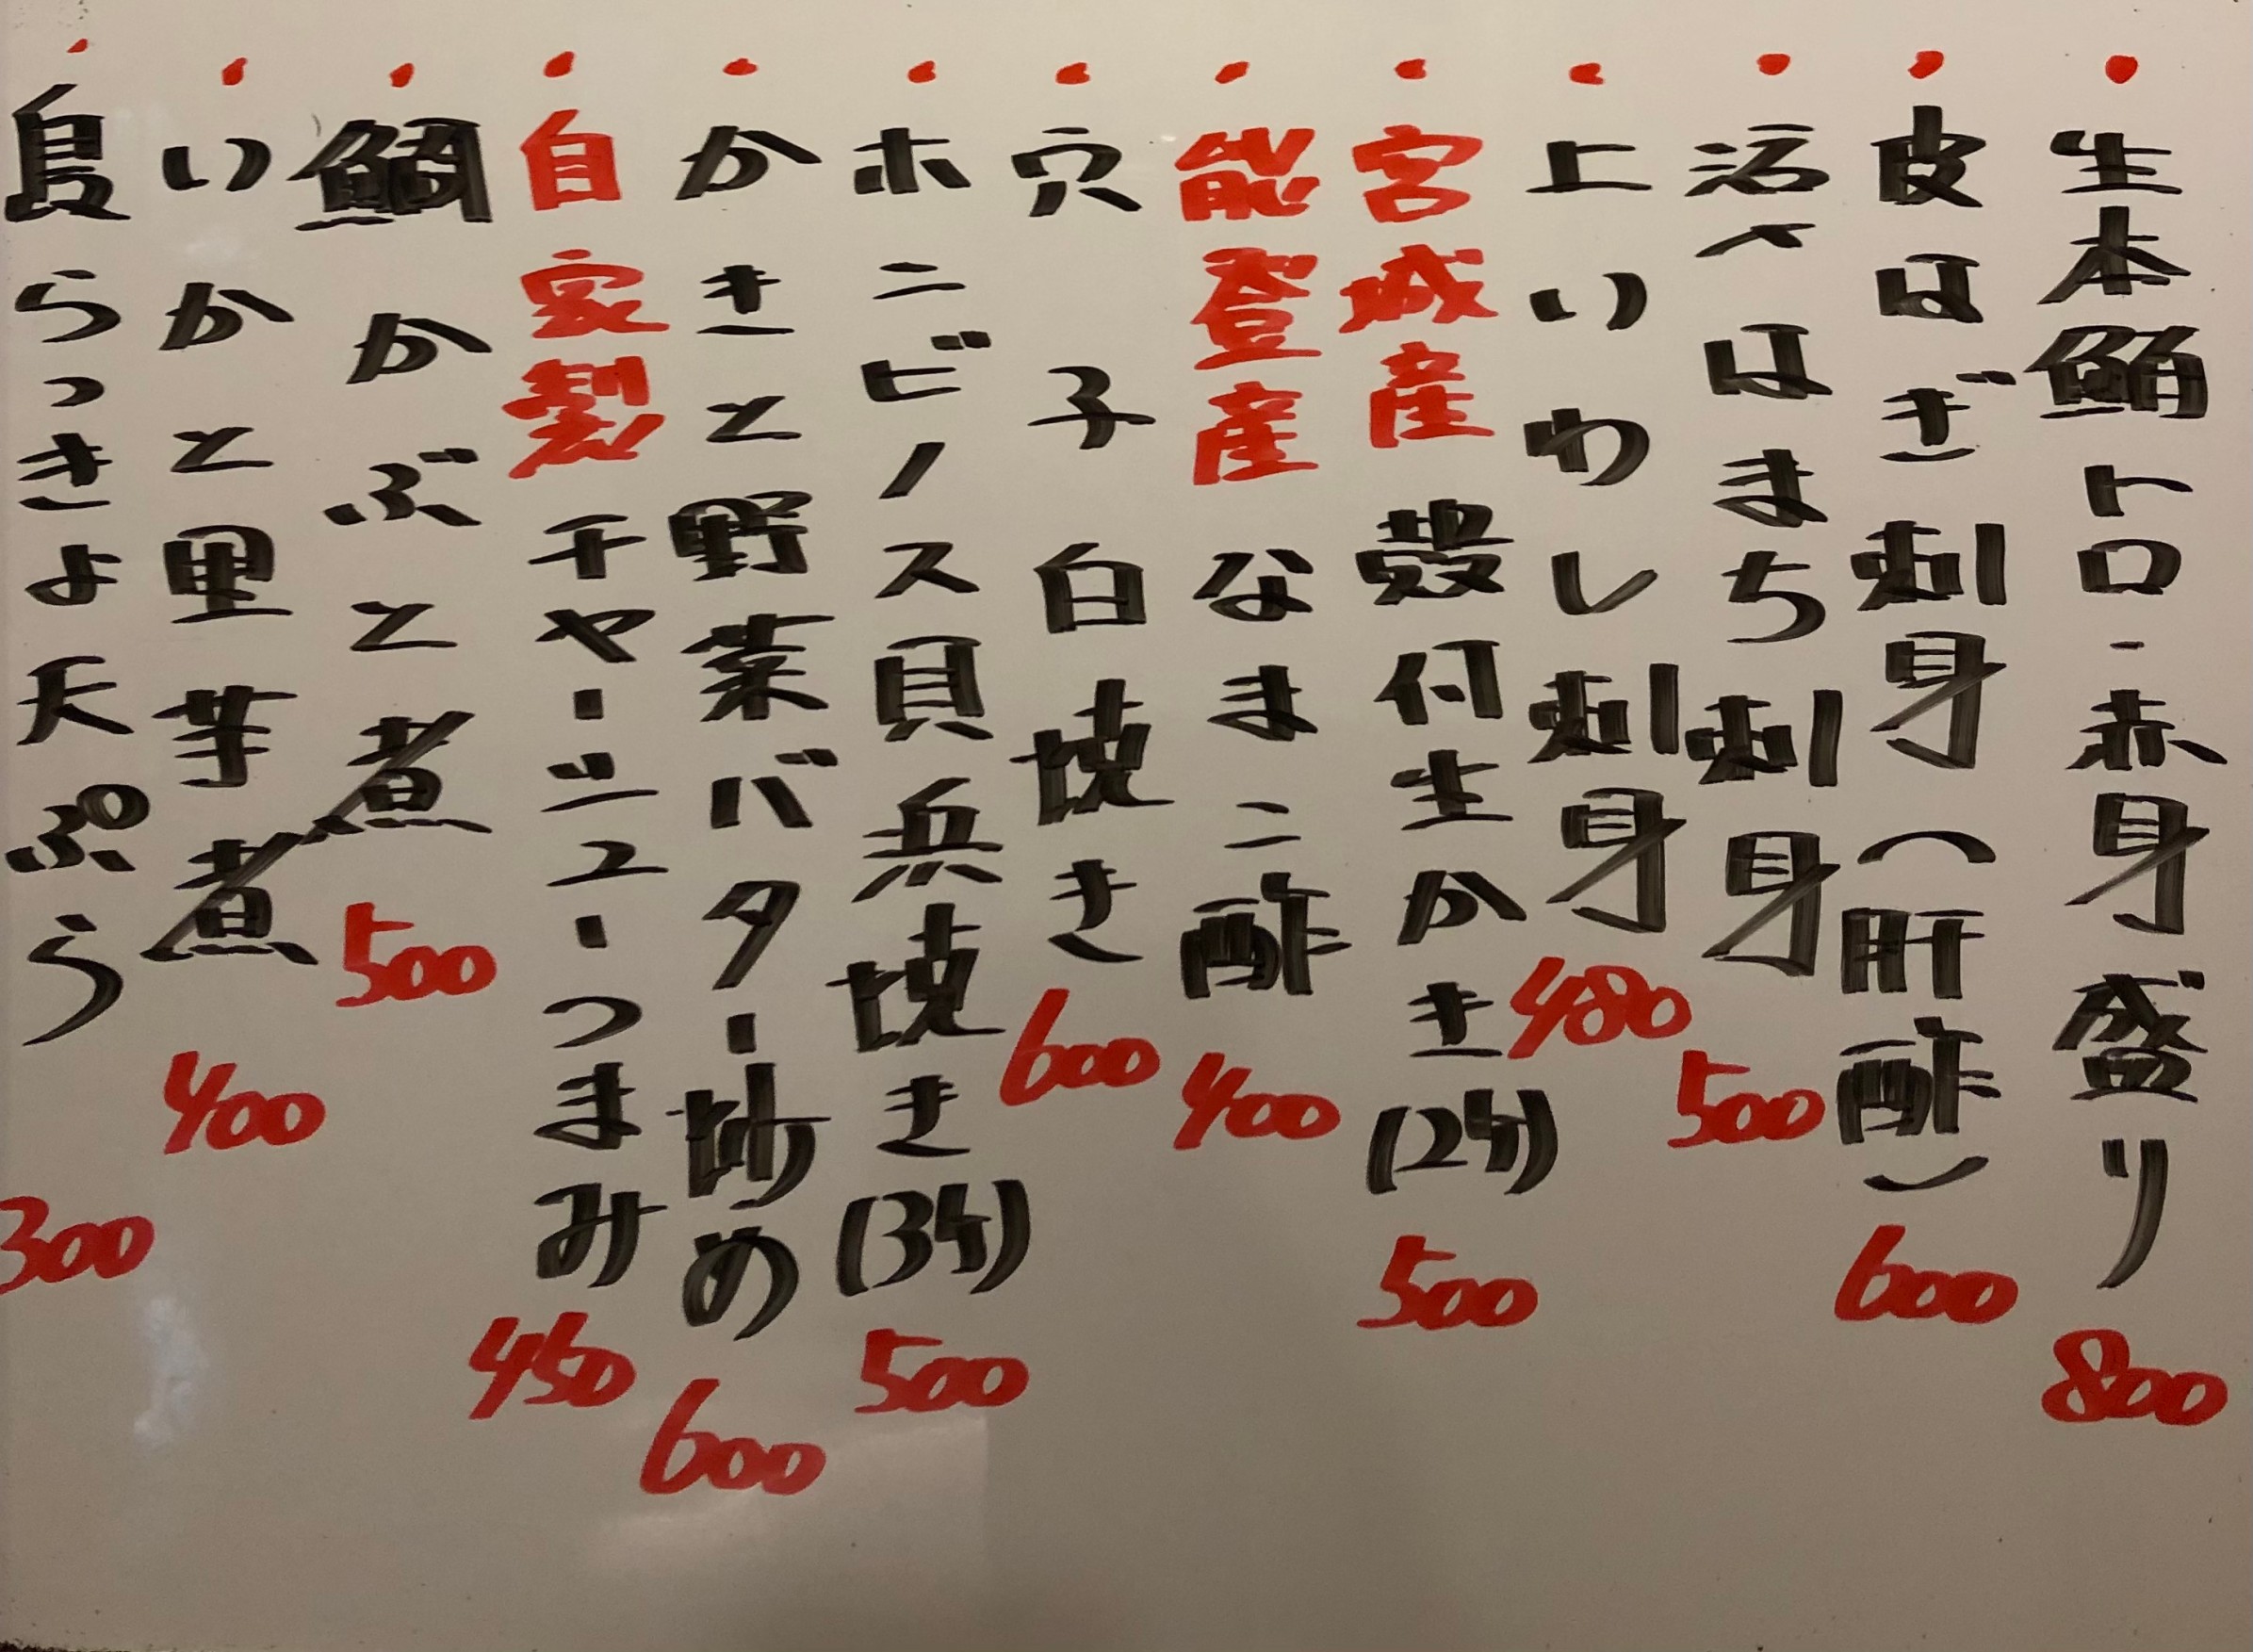 ・生本鮪トロ・赤身盛り 800
・皮はぎ刺身(肝酢) 600
・活〆はまち刺身 500
・上いわし刺身 480
・宮城産殻付生かき(2ケ) 500
・能登産なまこ酢 400
・穴子白焼き 600
・ホンビノス貝浜焼き(3ケ) 500
・かきと野菜バター炒め 600
・自家製チャーシューつまみ 450
・鯛かぶと煮 500
・いかと里芋煮 400
・島らっきょ天ぷら 300